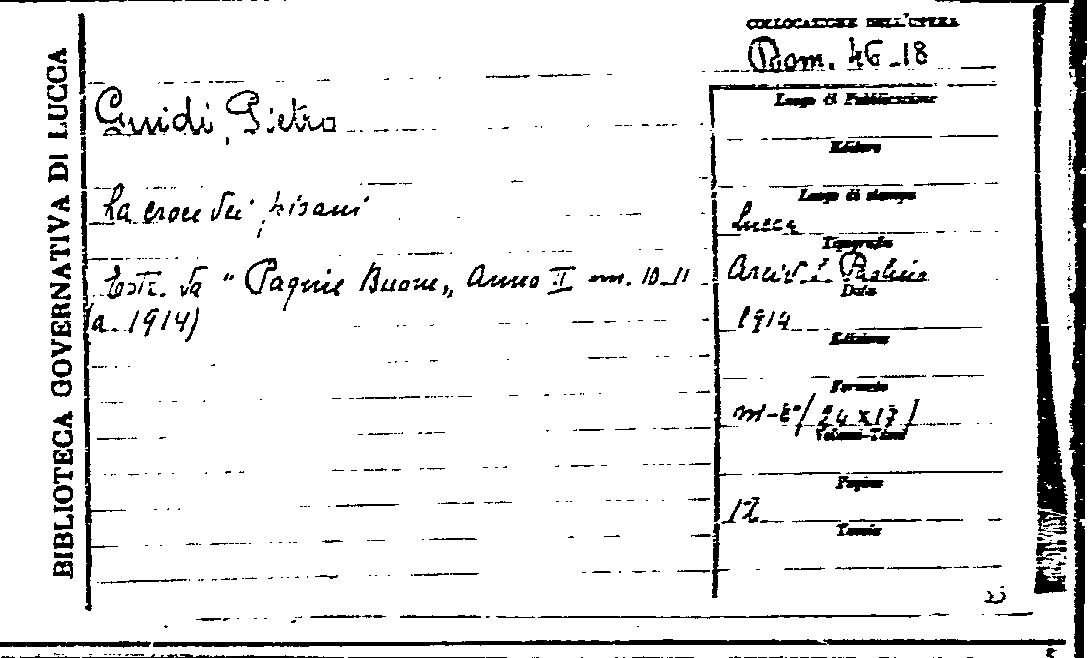 BIBLIOTECA GOVERNATIVA DI LUCCA
COLLOCAZIONE DELL'OPERA
Rom. 46-18
Guidi, Pietro
La croce dei pisani
Estr. da " Pagine Buone„ Anno II nn. 10-11
(a. 1914)
Luogo di Pubblicazione
Editore
Luogo di stampa
Lucca
Tipografia
Arciv. S. Paolino
Data
1914
Edizione
Formato
m-8°/ (24 x 17)
Volumi-Tomi
Pagine
17
Tavole